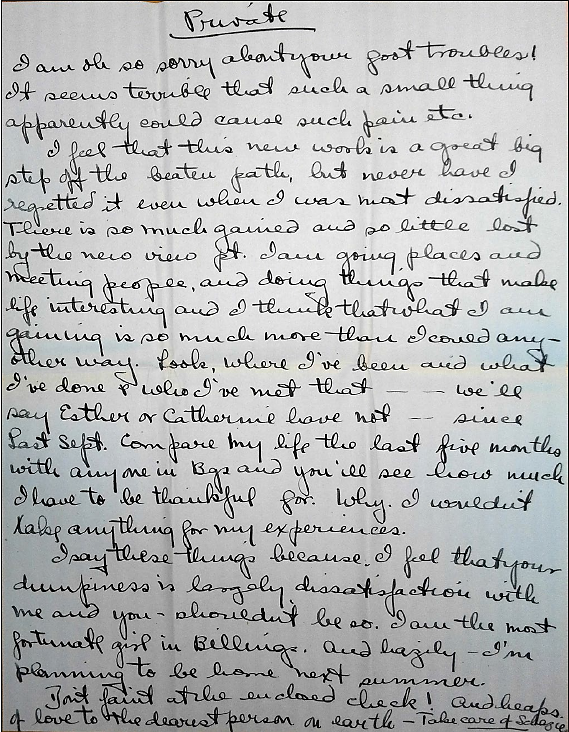 Private
I am oh so sorry about your foot troubles!
It seems terrible that such a small thing
apparently could cause such pain etc.
I feel that this new work is a great big
step off the beaten path, but never have I
regretted it even when I was most dissatisfied.
There is so much gained and so little lost
by the new view pt. I am going places and
meeting people, and doing things that make
life interesting and I think that what I am
gaining is so much more than I could any-
other way. Look, where I've been and what
I've done & who I've met that - - we'll
say Esther or Catherine have not -- since
Last Sept. Compare my life the last five months
with anyone in Bgs and you'll see how much
I have to be thankful for. Why. I wouldn't
take anything for my experiences.
I say these things because. I feel that your
dumpiness is largely dissatisfaction with
me and you - shouldn't be so. I am the most
fortunate girl in Billings. And hazily - I'm
planning to be home next summer.
Don't faint at the enclosed check! And heaps.
of love to the dearest person on earth - Take care of